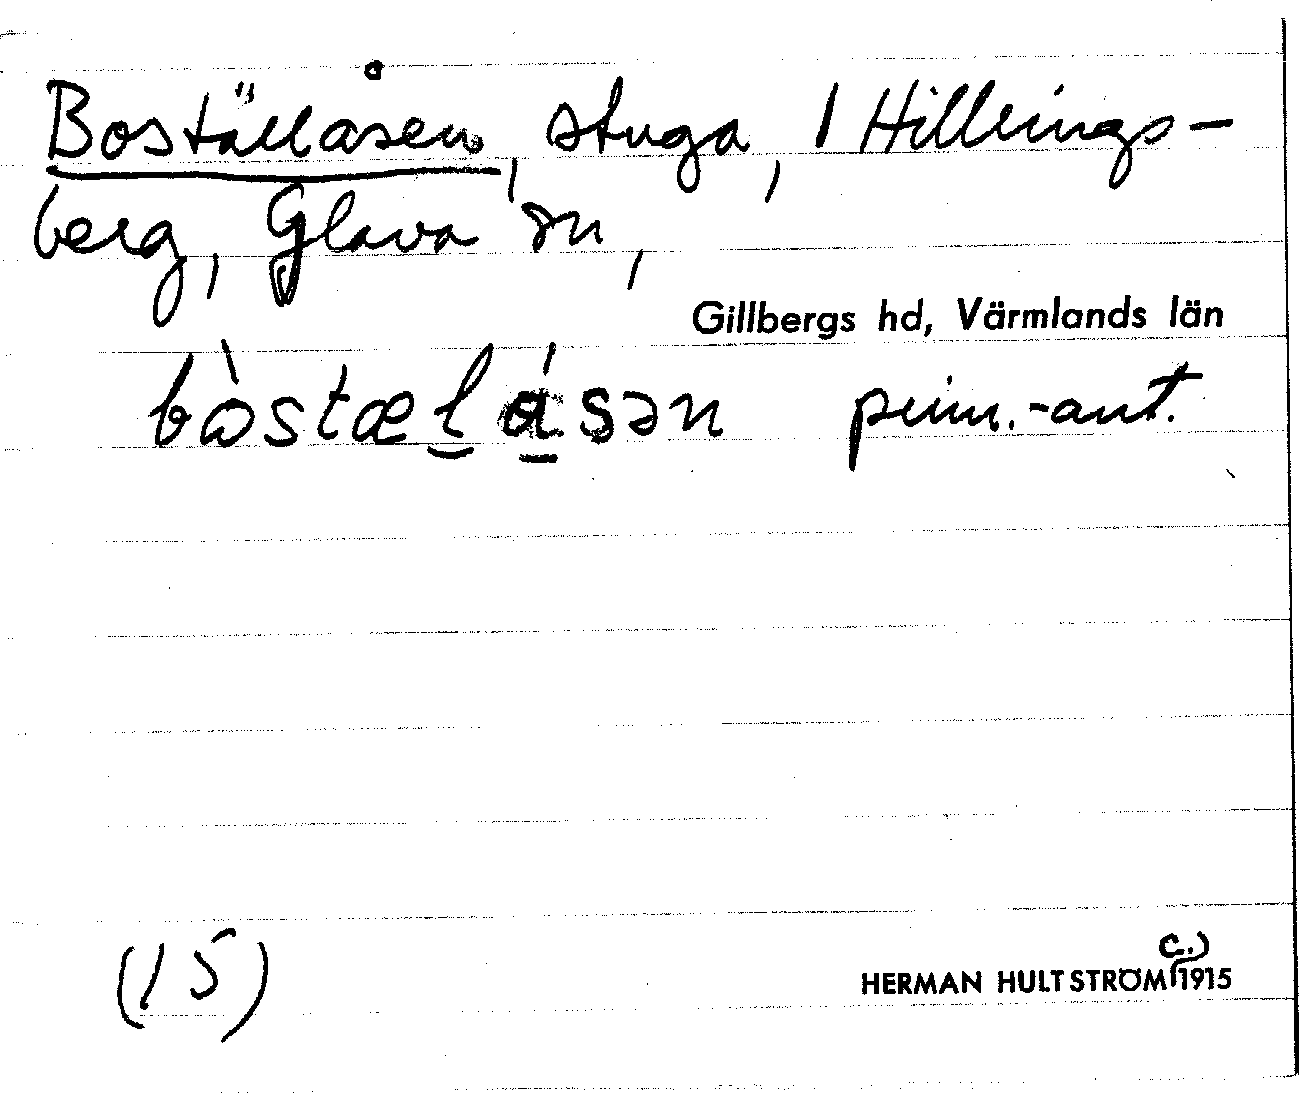 Boställåsen, stuga, 1 Hillrings-
berg, Glava sn,
Gillbergs hd, Värmlands län
bòstæl ásən prim.-ant.
(15)
HERMAN HULTSTRÖM (c.) 1915